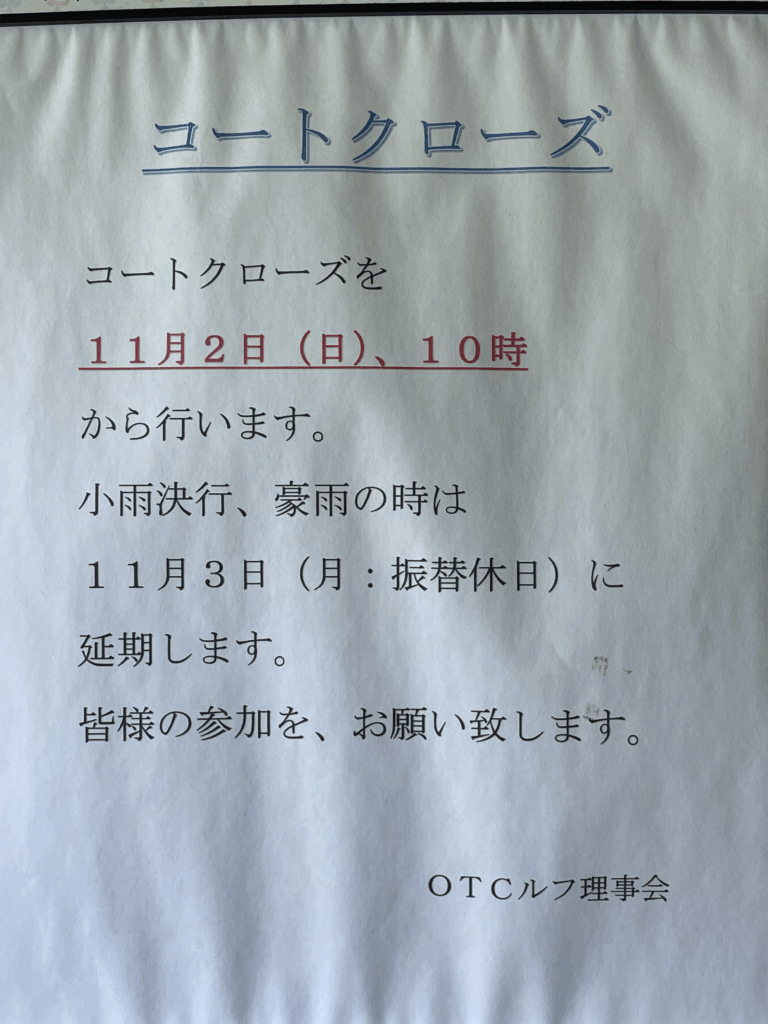 コートクローズ
コートクローズを
１１月２日（日）、１０時
から行います。
小雨決行、豪雨の時は
１１月３日（月：振替休日）に
延期します。
皆様の参加を、お願い致します。
ＯＴＣルフ理事会